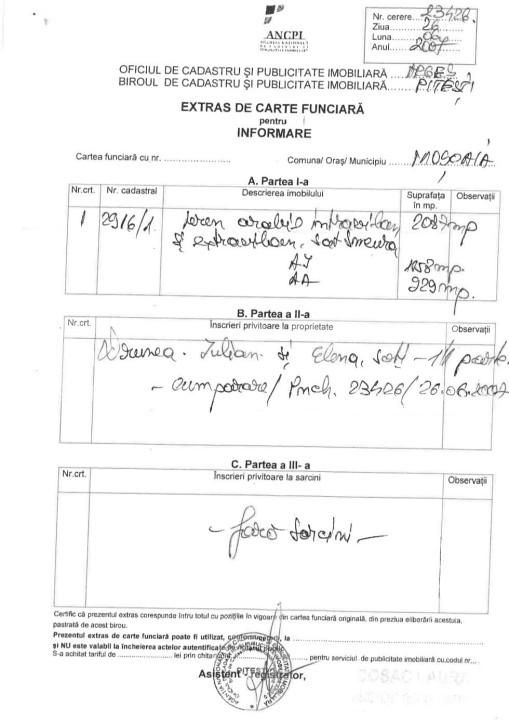 ANCPI
Nr. cerere 23426.
Ziua 26
Luna 06
Anul 2007
OFICIUL DE CADASTRU ŞI PUBLICITATE IMOBILIARĂ ARGEŞ
BIROUL DE CADASTRU ŞI PUBLICITATE IMOBILIARĂ PITEŞTI
EXTRAS DE CARTE FUNCIARĂ
pentru
INFORMARE
Cartea funciară cu nr. ...................... Comuna/ Oraş/ Municipiu MOŞOAIA
A. Partea I-a
Nr.crt. Nr. cadastral Descrierea imobilului Suprafaţa în mp. Observaţii
1 2916/1. teren arabil intravilan 2087mp
şi extravilan, sat Smeura
AI 1158mp.
AA 929mp.
B. Partea a II-a
Nr.crt. Înscrieri privitoare la proprietate Observaţii
Iulian şi Elena, soţi - 1/1 parte.
- cumparare/ 23426/26.06.2007
C. Partea a III- a
Nr.crt. Înscrieri privitoare la sarcini Observaţii
- fara sarcini -
Certific că prezentul extras corespunde întru totul cu poziţiile în vigoare din cartea funciară originală, din preziua eliberării acestuia,
pastrată de acest birou.
Prezentul extras de carte funciară poate fi utilizat, la
şi NU este valabil la încheierea actelor autentificate de
S-a achitat tariful de ........................ lei prin pentru serviciul de publicitate imobiliară cu codul nr...
PITEŞTI
Asistent - registrator,